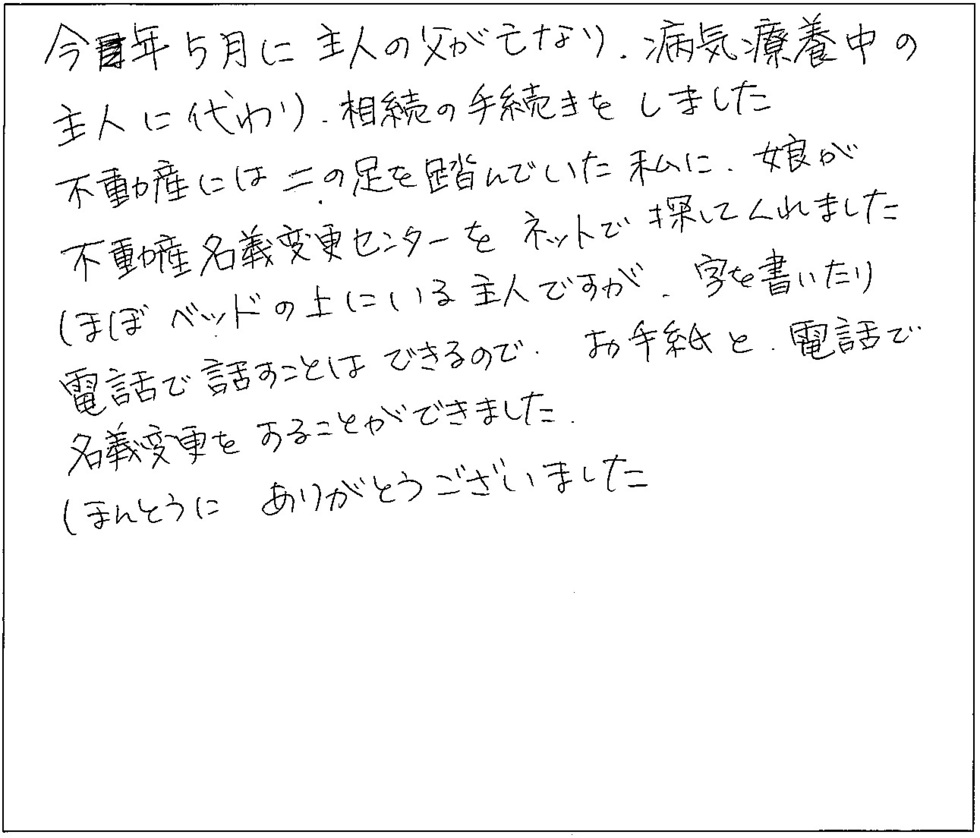 今年5月に 主人の父が亡なり、病気療養中の
主人に代わり、相続の手続きを しました
不動産には二の足を踏んでいた私に、娘が
不動産名義変更センターを ネットで探してくれました
ほぼ ベッドの上にいる主人ですが、字を書いたり
電話で話すことは できるので、 お手紙と、電話で
名義変更を することができました。
ほんとうに ありがとうございました